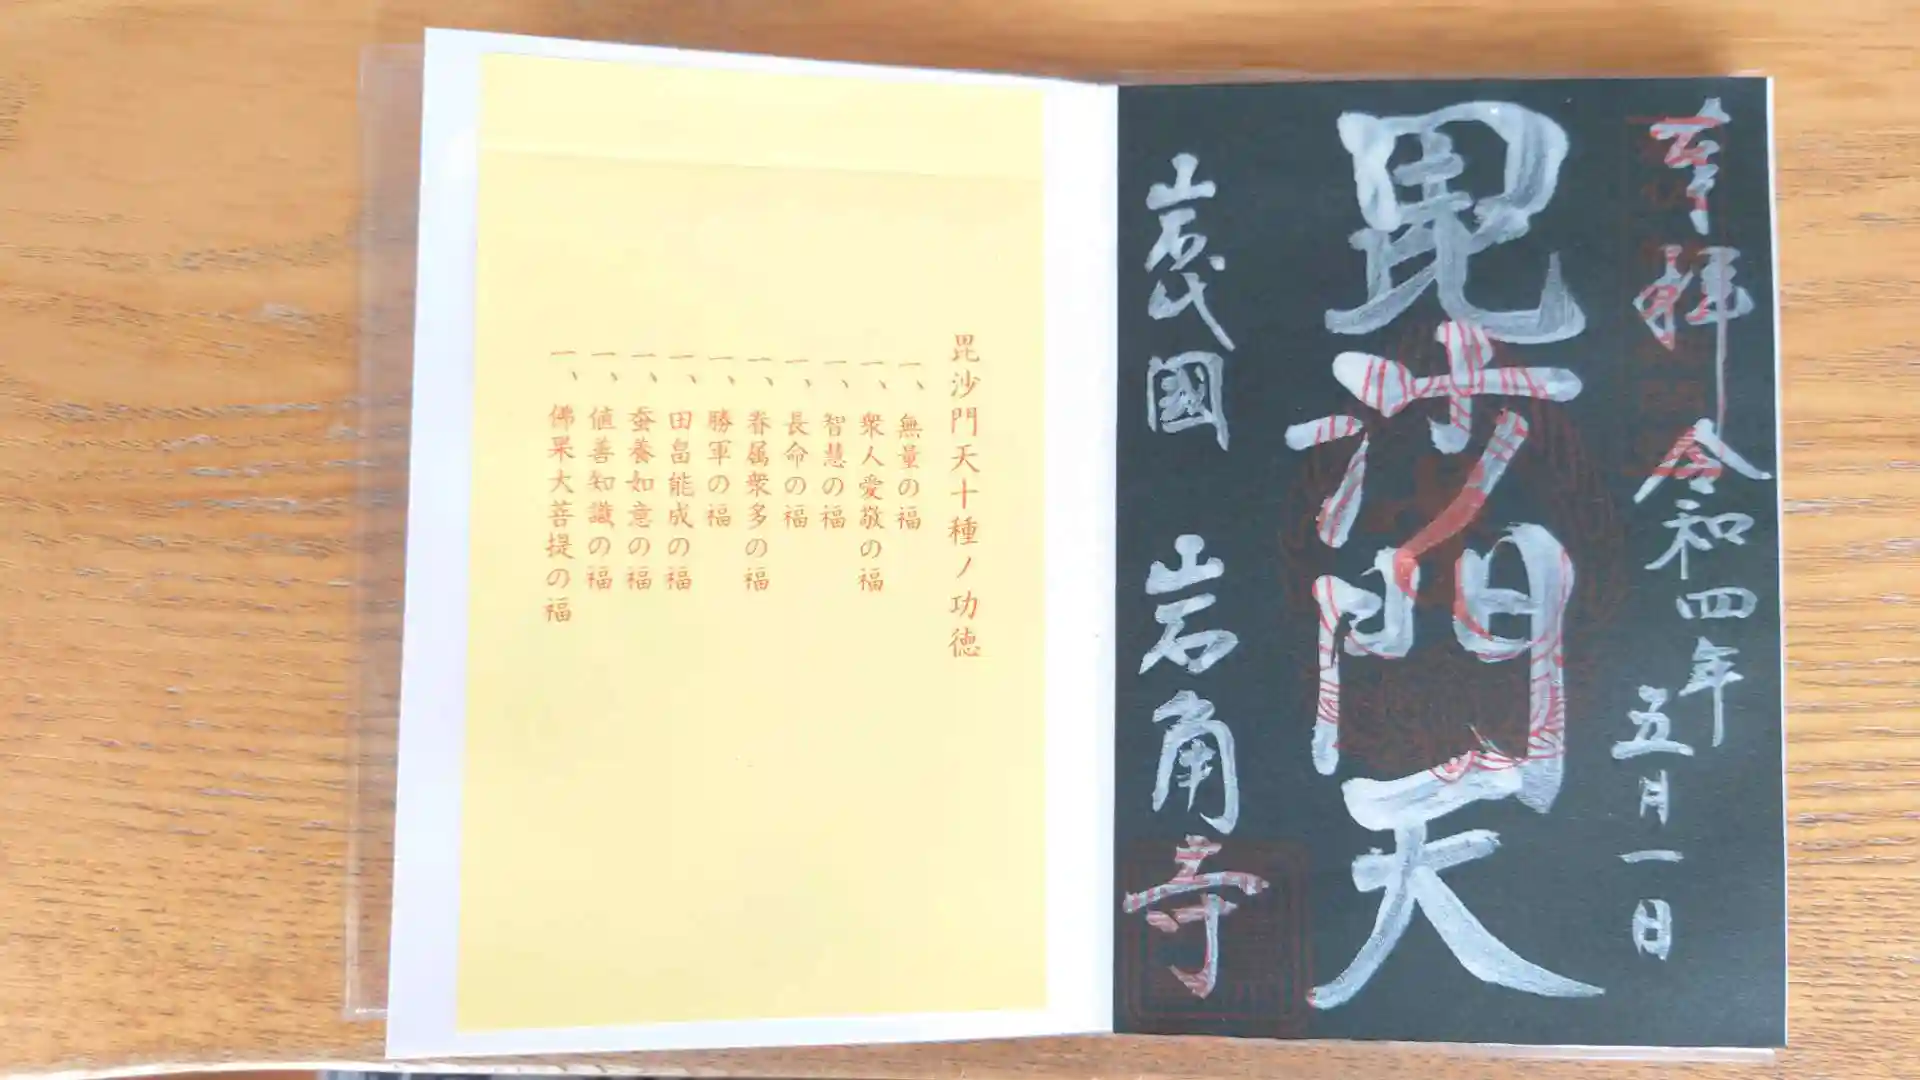 奉拝
令和四年
五月一日
毘沙門天
岩代國 岩角寺
毘沙門天十種ノ功徳
一、無量の福
一、衆人愛敬の福
一、智慧の福
一、長命の福
一、眷属衆多の福
一、勝軍の福
一、田畠能成の福
一、蚕養如意の福
一、値善知識の福
一、佛果大菩提の福